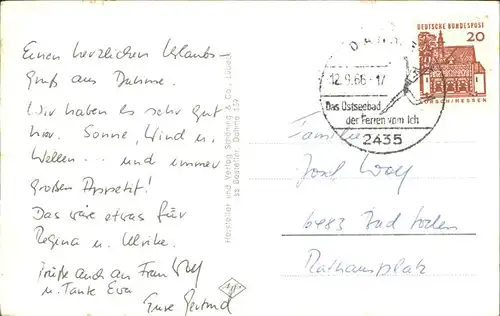 Einen herzlichen Urlaubs-
gruß aus Dahme.
Wir haben es sehr gut
hier. Sonne, Wind u.
Wellen... und immer
großen Appetit!
Das wäre etwas für
Regina u. Ulrike.
Grüße auch an Frau Wolf
u. Tante Eva
Eure Gertrud
Hersteller und Verlag Schöning & Co., Lübeck
Dahme 139
DAHME
12.9.66-17
Das Ostseebad
der Ferien vom Ich
2435
DEUTSCHE BUNDESPOST
20
LORSCH/HESSEN
Familie
Josef Wolf
6483 Bad Soden
Rathausplatz